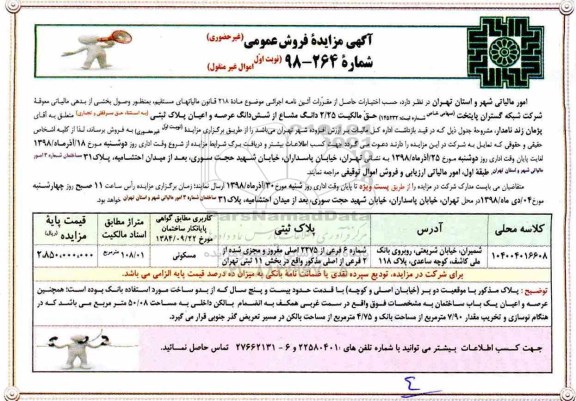 آگهی مزایدهٔ فروش عمومی (غیرحضوری)
شمارهٔ ۲۶۴-۹۸ (نوبت اوّل) اموال غیر منقول
امور مالیاتی شهر و استان تهران در نظر دارد، حسب اختیارات حاصل از مقرّرات آئین نامه اجرائی موضوع مادهٔ ۲۱۸ قانون مالیاتهای مستقیم، بمنظور وصول بخشی از بدهی مالیاتی معوقهٔ
شرکت شبکه گستران پایتخت (سهامی خاص) حق مالکیت ۲/۲۵ دانگ مشاع از شش‌دانگ عرصه و اعیان پلاک ثبتی (به استثناء حق سرقفلی و تجاری) متعلق به آقای
پژمان زند نامدار، مشروحهٔ جدول ذیل که در قید بازداشت اداره کل مالیاتی شهر تهران می‌باشد را از طریق برگزاری مزایدهٔ (نوبت اول غیرحضوری) به فروش برساند، لذا از کلیه اشخاص
حقیقی و حقوقی که تمایل به شرکت در این مزایده را دارند دعوت می‌گردد جهت کسب اطلاعات بیشتر و دریافت برگ شرایط مزایده از شروع وقت اداری روز دوشنبه مورخ ۱۸/آذرماه/۱۳۹۸
لغایت پایان وقت اداری روز دوشنبه مورخ ۲۵/آذرماه/۱۳۹۸ به نشانی تهران، خیابان پاسداران، خیابان شهید حجت سوری، بعد از میدان احتشامیه، پلاک ۳۱ ساختمان شماره ۳ امور
مالیاتی شهر و استان تهران طبقهٔ اول، امور مالیاتی ارزیابی و فروش اموال توقیفی مراجعه نمایند.
متقاضیان می بایست مدارک شرکت در مزایده را از طریق پست ویژه تا پایان وقت اداری روز شنبه مورخ ۳۰/آذرماه/۱۳۹۸ ارسال نمایند؛ زمان برگزاری مزایده رأس ساعت ۱۱ صبح روز چهارشنبه
مورخ ۰۴/دی ماه/۱۳۹۸ در محل تهران، خیابان پاسداران، خیابان شهید حجت سوری، بعد از میدان احتشامیه، پلاک ۳۱ ساختمان شماره ۳ امور مالیاتی شهر و استان تهران خواهد بود.
کلاسه محلی | آدرس | پلاک ثبتی | کاربری مطابق گواهی پایانکار ساختمان مورخ ۱۳۸۴/۰۹/۲۲ | متراژ مطابق اسناد مالکیت | قیمت پایهٔ مزایده (ریال)
۱۰۴۰۰۴۰۱۶۶۰۸ | شمیران، خیابان شریعتی، روبروی بانک ملی کاشف، کوچه ساعدی، پلاک ۱۱۸ | شماره ۶ فرعی از ۲۳۷۵ اصلی مفروز و مجزی شده از ۲ فرعی از اصلی مذکور واقع در بخش ۱۱ ثبتی تهران | مسکونی | ۱۰۸/۰۱ مترمربع | ۲۸،۵۰۰،۰۰۰،۰۰۰
برای شرکت در مزایده، تودیع سپرده نقدی یا ضمانت نامه بانکی به میزان ده درصد قیمت پایه الزامی می باشد.
توضیح : پلاک مذکور با موقعیت دو بر (خیابان اصلی و کوچه) با قدمت حدود بیست و پنج سال که از بدو ساخت مورد استفاده بانک بوده است؛ همچنین
عرصه و اعیان یک باب ساختمان به مشخصات فوق واقع در سمت غربی همکف به انضمام بالکن داخلی به مساحت ۵۰/۰۸ متر مربع می باشد که در
هنگام نوسازی و تخریب مقدار ۷/۹۰ مترمربع از مساحت بانک و ۴/۷۵ مترمربع از مساحت بالکن در مسیر تعریض گذر جنوبی قرار می گیرد.
جهت کسب اطلاعات بیشتر می توانید با شماره تلفن های ۲۲۵۸۰۴۰۱ و ۶ - ۲۷۶۶۲۱۳۱ تماس حاصل نمائید.